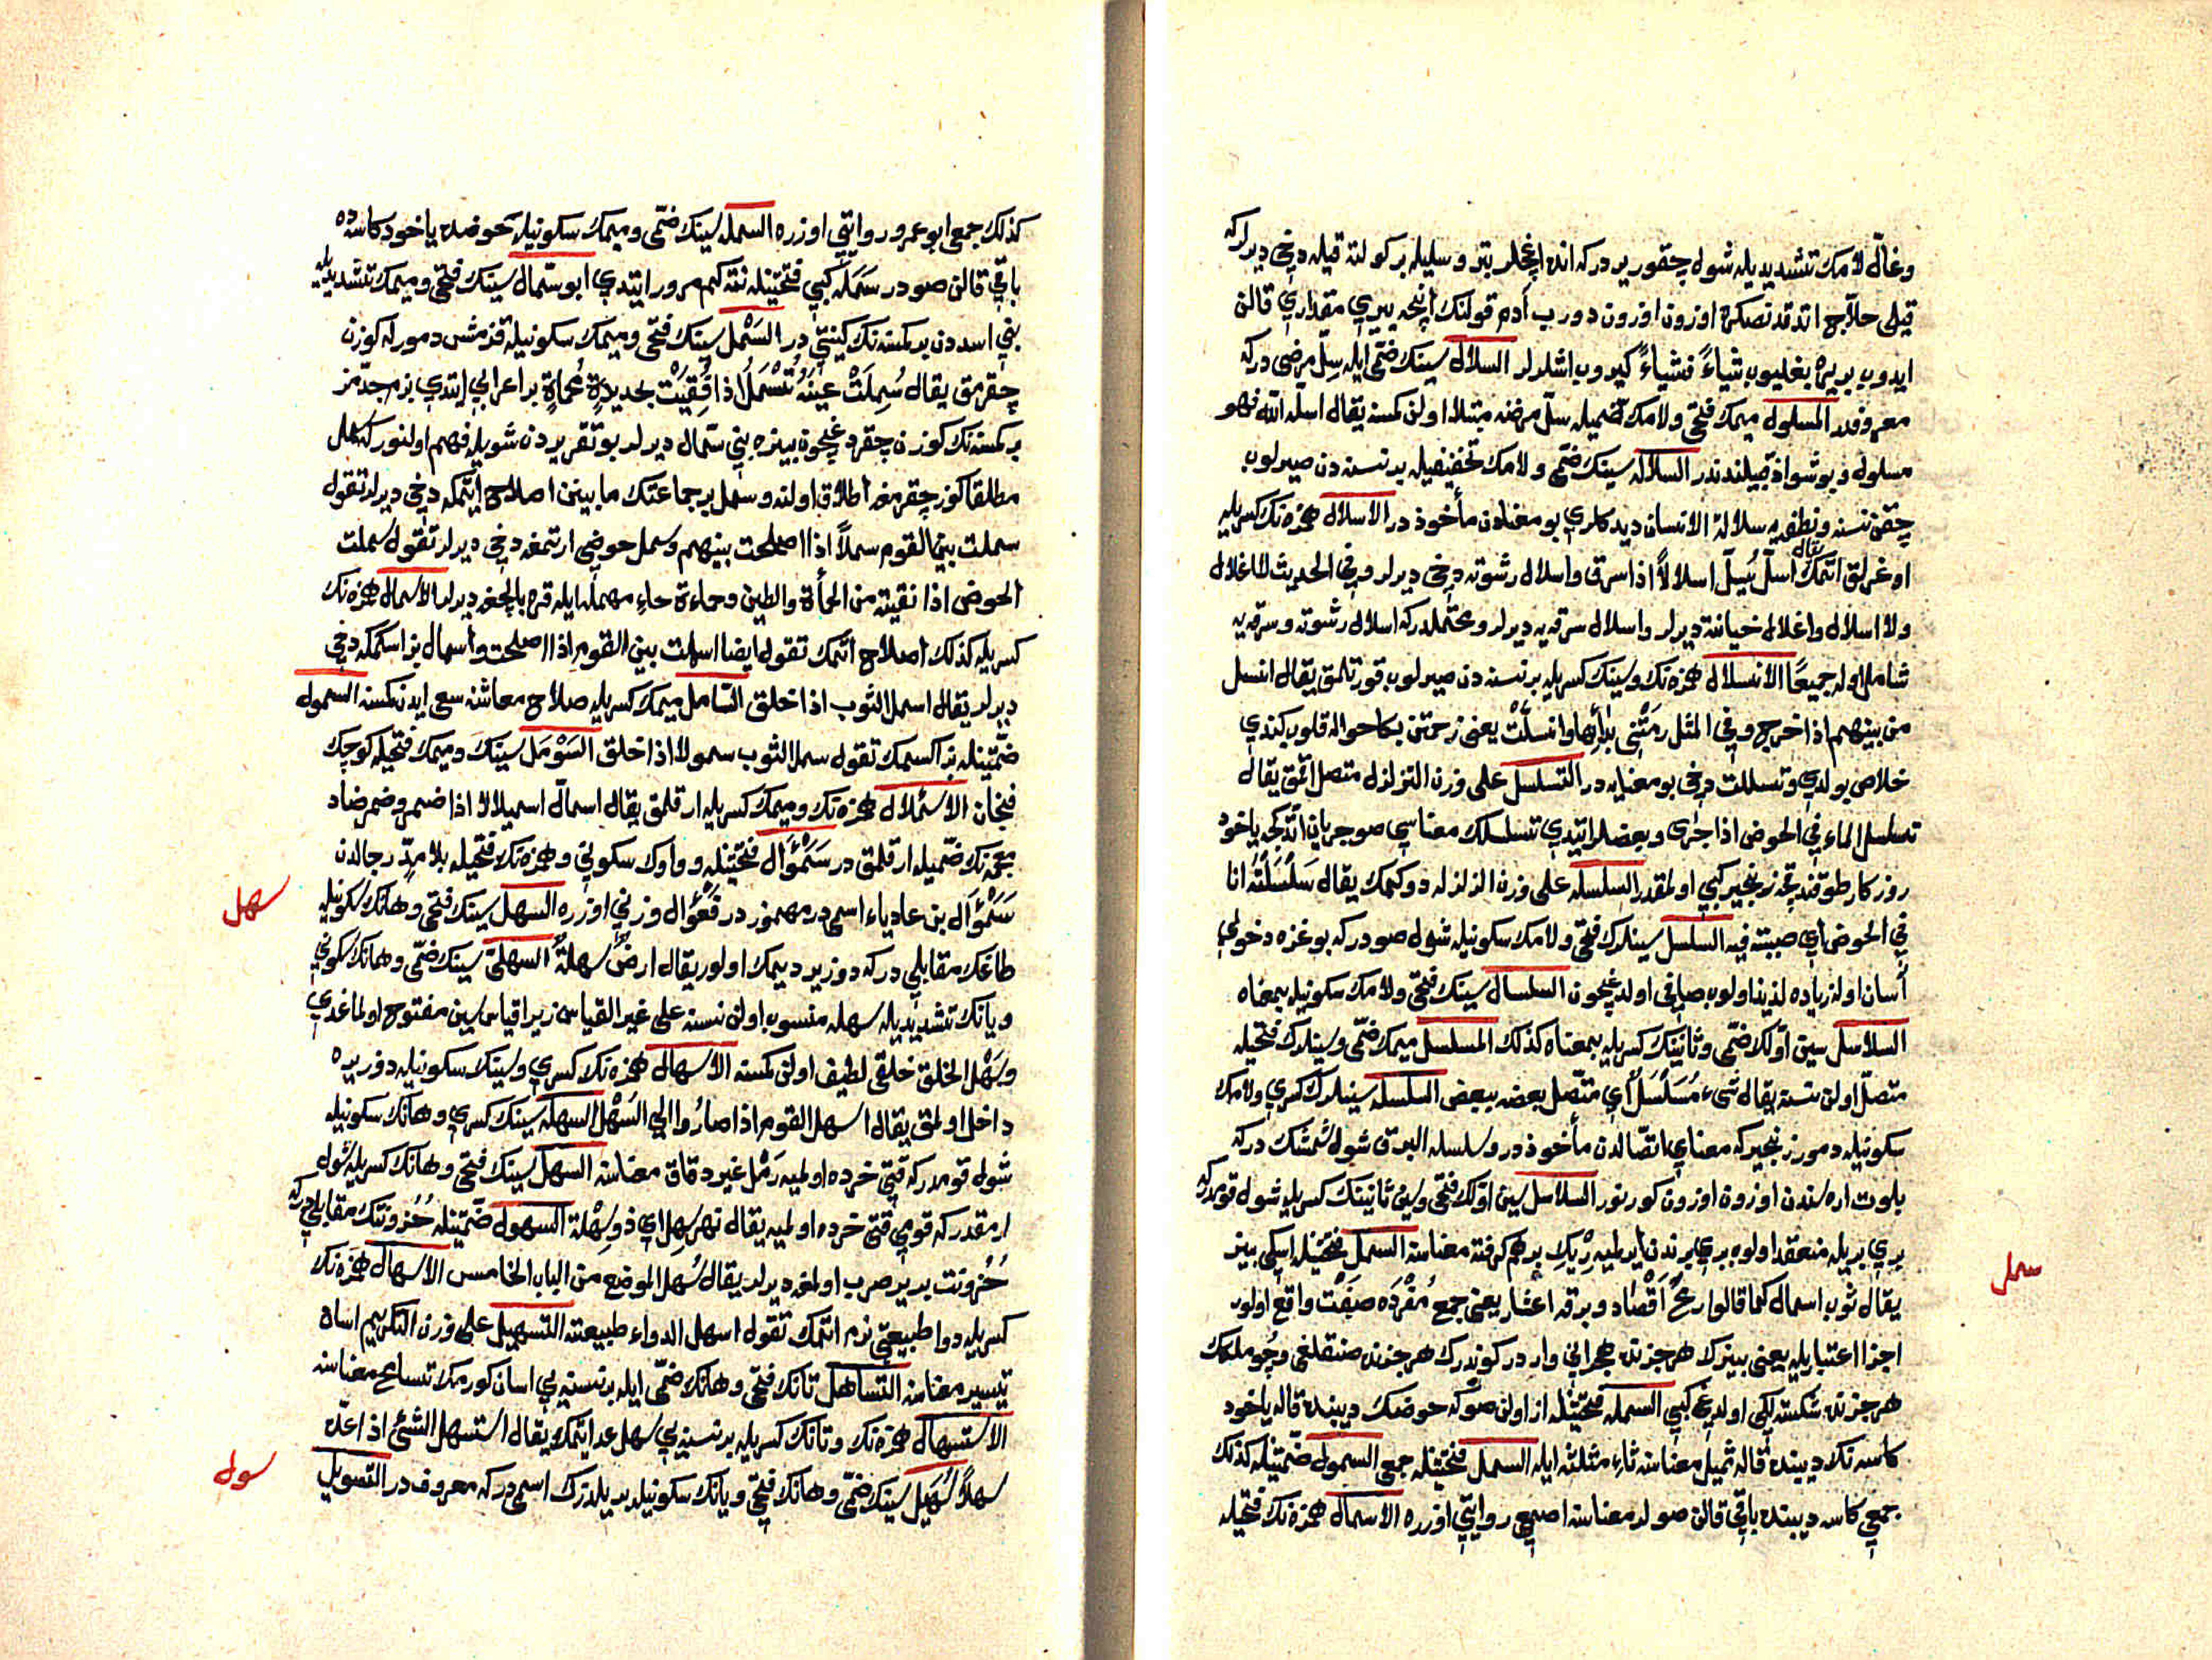 وغالّ لامك تشديديله شول چقور يردركه انده اغچلر بتر وسليله بر كولنه قيله دخى ديرلركه
قيلى حلاّج اتدقدنصكره اوزون اوزون دورب آدم قولنك اينجه ييرى مقدارى قالن
ايدوب بربره بغليوب شياءً فشياءً كيروب اشلرلر السلال سينك ضمّى ايله سِلّ مرضى دركه
معروفدر المسلول ميمك فتحى ولامك ضميله سلّ مرضنه مبتلا اولن كمسنه يقال اسلّه الله فهو
مسلول وبو شواذ قبيلندندر السلاله سينك ضمّى ولامك تخفيفيله بر نسنه دن صيرلوب
چقن نسنه ونطفه يه سلالة الانسان ديدكلرى بو معنادن مأخوذدر الاسلال همزه نك كسريله
اوغرلق اتمك يقال اسلّ يُسِلّ اسلالاً اذا سرق واسلال رشوته دخى ديرلر وفى الحديث لا اغلال
ولا اسلال واغلال خيانته ديرلر واسلال سرقه يه ديرلر ومحتملدركه اسلال رشوته وسرقه يه
شامل اوله جميعًا الانسلال همزه نك وسينك كسريله بر نسنه دن صيرلوب قورتلمق يقال انسل
من بينهم اذا خرج وفى المثل رمتْنى بدآئها وانسلّتْ يعنى زحمتن بكا حواله قلوب كندى
خلاص بولدى وتسللت دخى بو معنايه در التسلسل على وزن التزلزل متصل اتمق يقال
تسلسل الماء فى الحوض اذا جرى وبعضلر ايتدى تسلسلك معناسى صو جريان اتدكجه ياخود
روزكار طوقندقجه زنجير كبى اولمقدر السلسله على وزن الزلزله دوكمك يقال سَلْسَلْتُه انا
فى الحوض اى صببته فيه السلسل سينلرك فتحى ولامك سكونيله شول صودركه بوغزه دخولى
آسان اوله زياده لذيذ اولوب صافى اولدغيچون السلسال سينك فتحى ولامك سكونيله بمعناه
السلاسل سين اوّلك ضمّى وثانينك كسريله بمعناه كذلك المسلسل ميمك ضمّى وسينلرك فتحيله
متصل اولن نسنه يقال شىء مُسَلْسَلٌ اى متّصل بعضه ببعض السلسله سينلرك كسرى ولامك
سكونيله دمور زنجيركه معناى اتصالدن مأخوذدر وسلسله البرق شول شمشك دركه
بلوت اره سندن اوزون اوزون كورنور السلاسل سين اوّلك فتحى وسين ثانينك كسريله شول قومدركه
برى بريله منعقد اولوب برى برندن ايرلميه رِيك برهم كرفته معناسنه السمل فتحتينله اسكى بيز
يقال ثوب اسمال كما قالوا رمح اَقْصاد وبرقه اعشار يعنى جمع مُفْرَده صفت واقع اولور
اجزا اعتباريله يعنى بيزك هر جزئنده بجرانى واردر كوندرك هر جزئنده صنقلغى وچوملكك
هر جزئنده شكسته لكى اولدغى كبى السمله فتحتينله از اولن صوكه حوضك ديبنده قاله ياخود
كاسه نك ديبنده قاله ثميل معناسنه ثاء مثلثه ايله السمل فتحتينله جمعى السمول ضمّتينله كذلك
جمعى كاسه ديبنده باقى قالن صولر معناسنه اصمعى روايتى اوزره الاسمال همزه نك فتحيله
سمل
كذلك جمعى ابو عمرو روايتى اوزره السمله سينك ضمّى وميمك سكونيله حوضده ياخود كاسه ده
باقى قالن صودر سَمَلَه كبى فتحتينله نته كيم مرور ايتدى ابو سمّال سينك فتحى وميمك تشديديله
بنى اسد دن بر كمسنه نك كنيتى در السَمْل سينك فتحى وميمك سكونيله قزمش دمورله كوزن
چقرمق يقال سُمِلَتْ عينُهُ تُسْمَلُ اذا فُقِيَت بحديدة مُحماةٍ بر اعرابى ايتدى بزم جدّمز
بر كمسنه نك كوزن چقردغيچون بيزه بنى سمّال ديرلر بو تقريردن شويله فهم اولنوركه سمل
مطلقا كوز چقرمغه اطلاق اولنه وسمل بر جماعتك مابينن اصلاح ايتمكه دخى ديرلر تقول
سملت بين القوم سملاً اذا اصلحت بينهم وسمل حوضى ارتمغه دخى ديرلر تقول سملت
الحوض اذا نقيته من الحمأة والطين وحماءة حاء مهمله ايله قره بالچغه ديرلر الاسمال همزه نك
كسريله كذلك اصلاح اتمك تقول ايضا اسملت بين القوم اذا اصلحت واسمال بز اسكمكه دخى
ديرلر يقال اسمل الثوب اذا اخلق السّامل ميمك كسريله صلاح معاشنه سعى ايدن كمسنه السمول
ضمّتينله بز اكسمك تقول سمل الثوب سمولا اذا اخلق السَوْمَل سينك وميمك فتحيله كوچك
فنجان الاسملال همزه نك وميمك كسريله ارقلمق يقال اسمالّ اسميلالا اذا ضمر وضمر ضاد
معجمه نك ضمّيله ارقلمق در سَمَوْأل فتحتينله وواوك سكونى وهمزه نك فتحيله بلا مدّ رجالدن
سَمَوْأل بن عادياء اسمى در مهموز در فَعَوْأل وزنى اوزره السهل سينك فتحى وهانك سكونيله
طاغك مقابلى دركه دوز ير ديمك اولور يقال ارضٌ سهلةٌ السهلىّ سينك ضمّى وهانك سكونى
ويانك تشديديله سهله منسوب اولن نسنه على غير القياس زيرا قياس سين مفتوح اولماغدى
وسَهْل الخلق خلقى لطيف اولن كمسنه الاسهال همزه نك كسرى وسينك سكونيله دوز يره
داخل اولمق يقال اسهل القوم اذا صارُوا الى السَهْل السهله سينك كسرى وهانك سكونيله
شول قومدركه قتى خرده اولميه رَمْل غير دقاق معناسنه السهل سينك فتحى وهانك كسريله شول
ارمقدركه قومى قتى خرده اولميه يقال نهر سهل اى ذو سِهْلة السهول ضمّتينله حُزونتك مقابلى دركه
حُزونت ير يرصرب اولمغه ديرلر يقال سهل الموضع من الباب الخامس الاسهال همزه نك
كسريله دوا طبيعتى نرم اتمك تقول اسهل الدواء طبيعته التسهيل على وزن التكريم اسان
تيسير معناسنه التساهل تانك فتحى وهانك ضمّى ايله بر نسنه يى اسان كورمك تسامح معناسنه
الاستسهال همزه نك وتانك كسريله بر نسنه يى سهل عد ايتمك يقال استسهل الشئ اذ اعدّه
سهلاً سُهَيل سينك ضمّى وهانك فتحى ويانك سكونيله بر يلدزك اسمى دركه معروفدر التسويل
سهل
سول